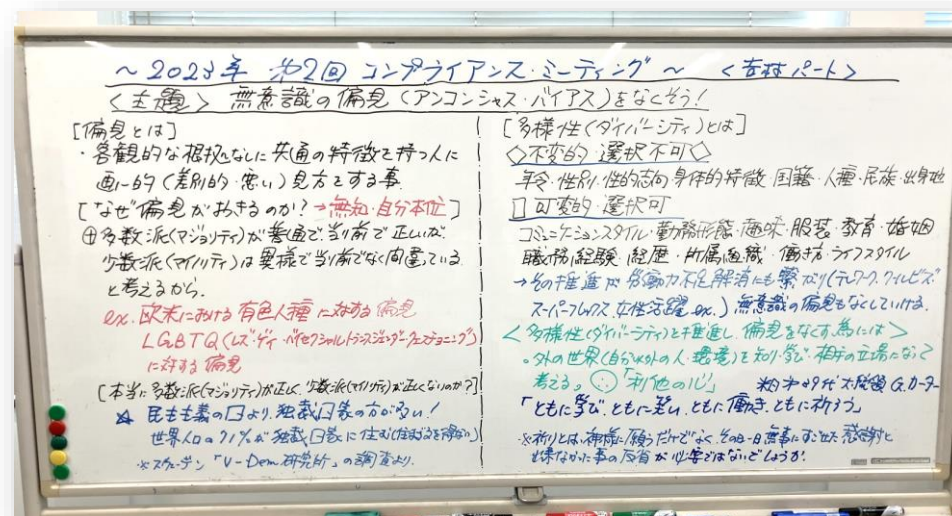 ～2023年 第2回 コンプライアンス・ミーティング～ <吉村パート>
<主題> 無意識の偏見(アンコンシャス・バイアス)をなくそう!
[偏見とは]
・客観的な根拠なしに共通の特徴を持つ人に
画一的(差別的・悪い)見方をする事
[なぜ偏見がおきるのか?→無知・自分本位]
⊕多数派(マジョリティ)が普通で、当り前で正しいが、
少数派(マイノリティ)は異様で当り前でなく間違っている
と考えるから。
ex. 欧米における有色人種に対する偏見
LGBTQ(レズ・ゲイ・バイセクシャル・トランスジェンダー・クェスチョニング)
に対する偏見
[本当に多数派(マジョリティ)が正しく、少数派(マイノリティ)が正しくないのか?]
☆ 民主主義の国より、独裁国家の方が多い!
世界人口の71%が独裁国家に住む(住まざるを得ない)
※スウェーデン「V-Dem研究所」の調査より。
[多様性(ダイバーシティ)とは]
◇不変的・選択不可◇
年令・性別・性的志向・身体的特徴・国籍・人種・民族・出身地
□可変的・選択可
コミュニケーションスタイル・勤務形態・趣味・服装・教育・婚姻
職務経験・経歴・所属組織・働き方・ライフスタイル
→その推進が労働力不足解消にも繋がり(テレワーク、クールビズ、
スーパーフレックス、女性活躍 ex.)無意識の偏見もなくしていける。
<多様性(ダイバーシティ)を推進し、偏見をなくす為には>
○外の世界(自分以外の人・環境)を知り、学び、相手の立場になって
考える。「利他の心」 米 大統領 G.カーター
「ともに学び、ともに笑い、ともに働き、ともに祈ろう」
※祈りとは、神様に願うだけでなく、その日一日無事にすごせた感謝と
出来なかった事の反省が必要ではないでしょうか。